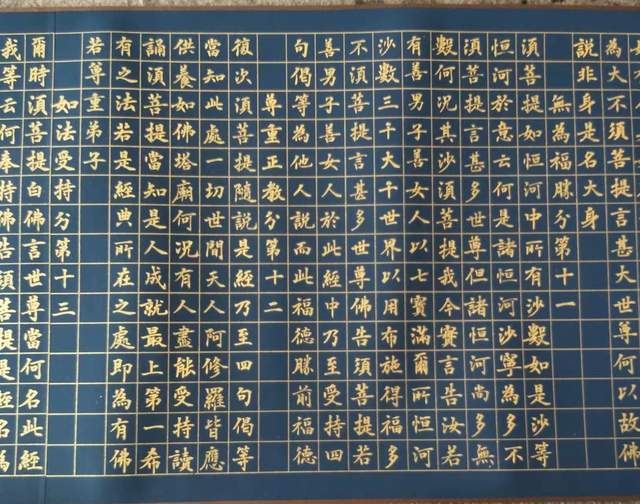 為大不須菩提言甚大世尊何以故佛
說非身是名大身
無為福勝分第十一
須菩提如恒河中所有沙數如是沙等
恒河於意云何是諸恒河沙寧為多不
須菩提言甚多世尊但諸恒河尚多無
數何況其沙須菩提我今實言告汝若
有善男子善女人以七寶滿爾所恒河
沙數三千大千世界以用布施得福多
不須菩提言甚多世尊佛告須菩提若
善男子善女人於此經中乃至受持四
句偈等為他人說而此福德勝前福德
尊重正教分第十二
復次須菩提隨說是經乃至四句偈等
當知此處一切世間天人阿修羅皆應
供養如佛塔廟何況有人盡能受持讀
誦須菩提當知是人成就最上第一希
有之法若是經典所在之處即為有佛
若尊重弟子
如法受持分第十三
爾時須菩提白佛言世尊當何名此經
我等云何奉持佛告須菩提是經名為